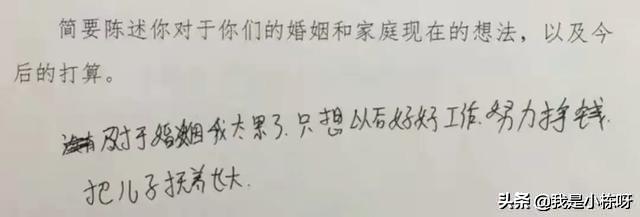 简要陈述你对于你们的婚姻和家庭现在的想法，以及今
后的打算。
对于婚姻我太累了.只想以后好好工作.努力挣钱.
把儿子抚养长大.
头条 @我是小栋呀